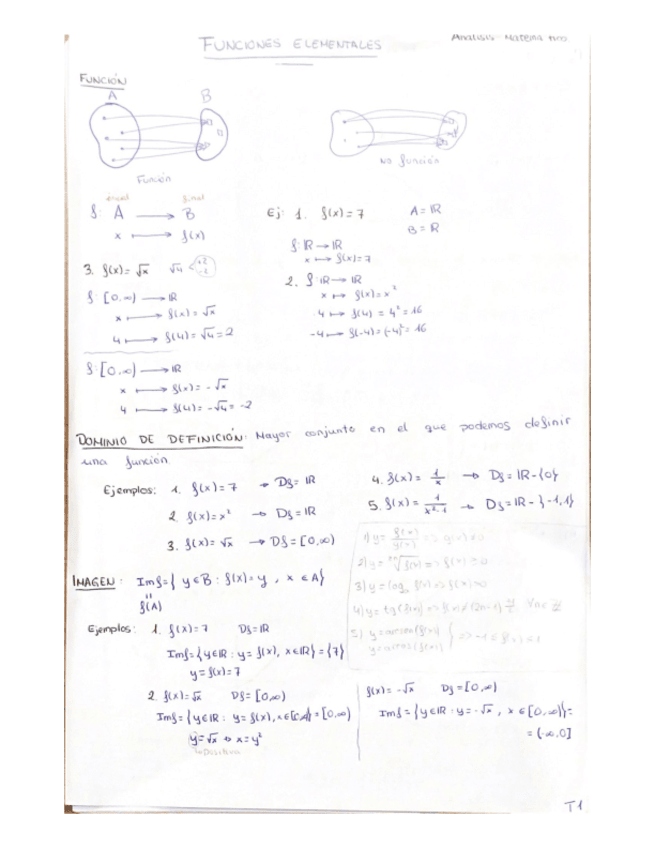 FUNCIONES ELEMENTALES
Análisis Matemático
FUNCIÓN
A B
Función
No función
inicial final
f: A → B
x ↦ f(x)
Ej: 1. f(x)=7 A=ℝ
B=ℝ
f: ℝ → ℝ
x ↦ f(x)=7
2. f: ℝ → ℝ
x ↦ f(x)=x²
4 ↦ f(4) = 4² = 16
-4 ↦ f(-4) = (-4)² = 16
3. f(x)=√x √4 < +2
-2
f: [0,∞) → ℝ
x ↦ f(x)=√x
4 ↦ f(4)=√4=2
f: [0,∞) → ℝ
x ↦ f(x) = -√x
4 ↦ f(4) = -√4 = -2
DOMINIO DE DEFINICIÓN: Mayor conjunto en el que podemos definir
una función
Ejemplos: 1. f(x)=7 → Df=ℝ
2. f(x)=x² → Df=ℝ
3. f(x)=√x → Df=[0,∞)
4. f(x)= 1/x → Df=ℝ-{0}
5. f(x)= 1/(x²-1) → Df=ℝ-{-1,1}
1) y= f(x)/g(x) => g(x)≠0
2) y= ²ⁿ√f(x) => f(x)≥0
3) y=log f(x) => f(x)>0
4) y=tg(f(x)) => f(x)≠(2n-1) π/2 ∀n∈ℤ
5) y=arcsen(f(x))
y=arccos(f(x)) } => -1≤f(x)≤1
IMAGEN: Imf={y∈B: f(x)=y, x∈A}
"
f(A)
Ejemplos: 1. f(x)=7 Df=ℝ
Imf={y∈ℝ: y=f(x), x∈ℝ}={7}
y=f(x)=7
2. f(x)=√x Df=[0,∞)
Imf={y∈ℝ: y=f(x), x∈[0,∞)}=[0,∞)
y=√x ⇔ x=y²
Positiva
f(x)=-√x Df=[0,∞)
Imf={y∈ℝ: y=-√x, x∈[0,∞)}=
= (-∞,0]
T1